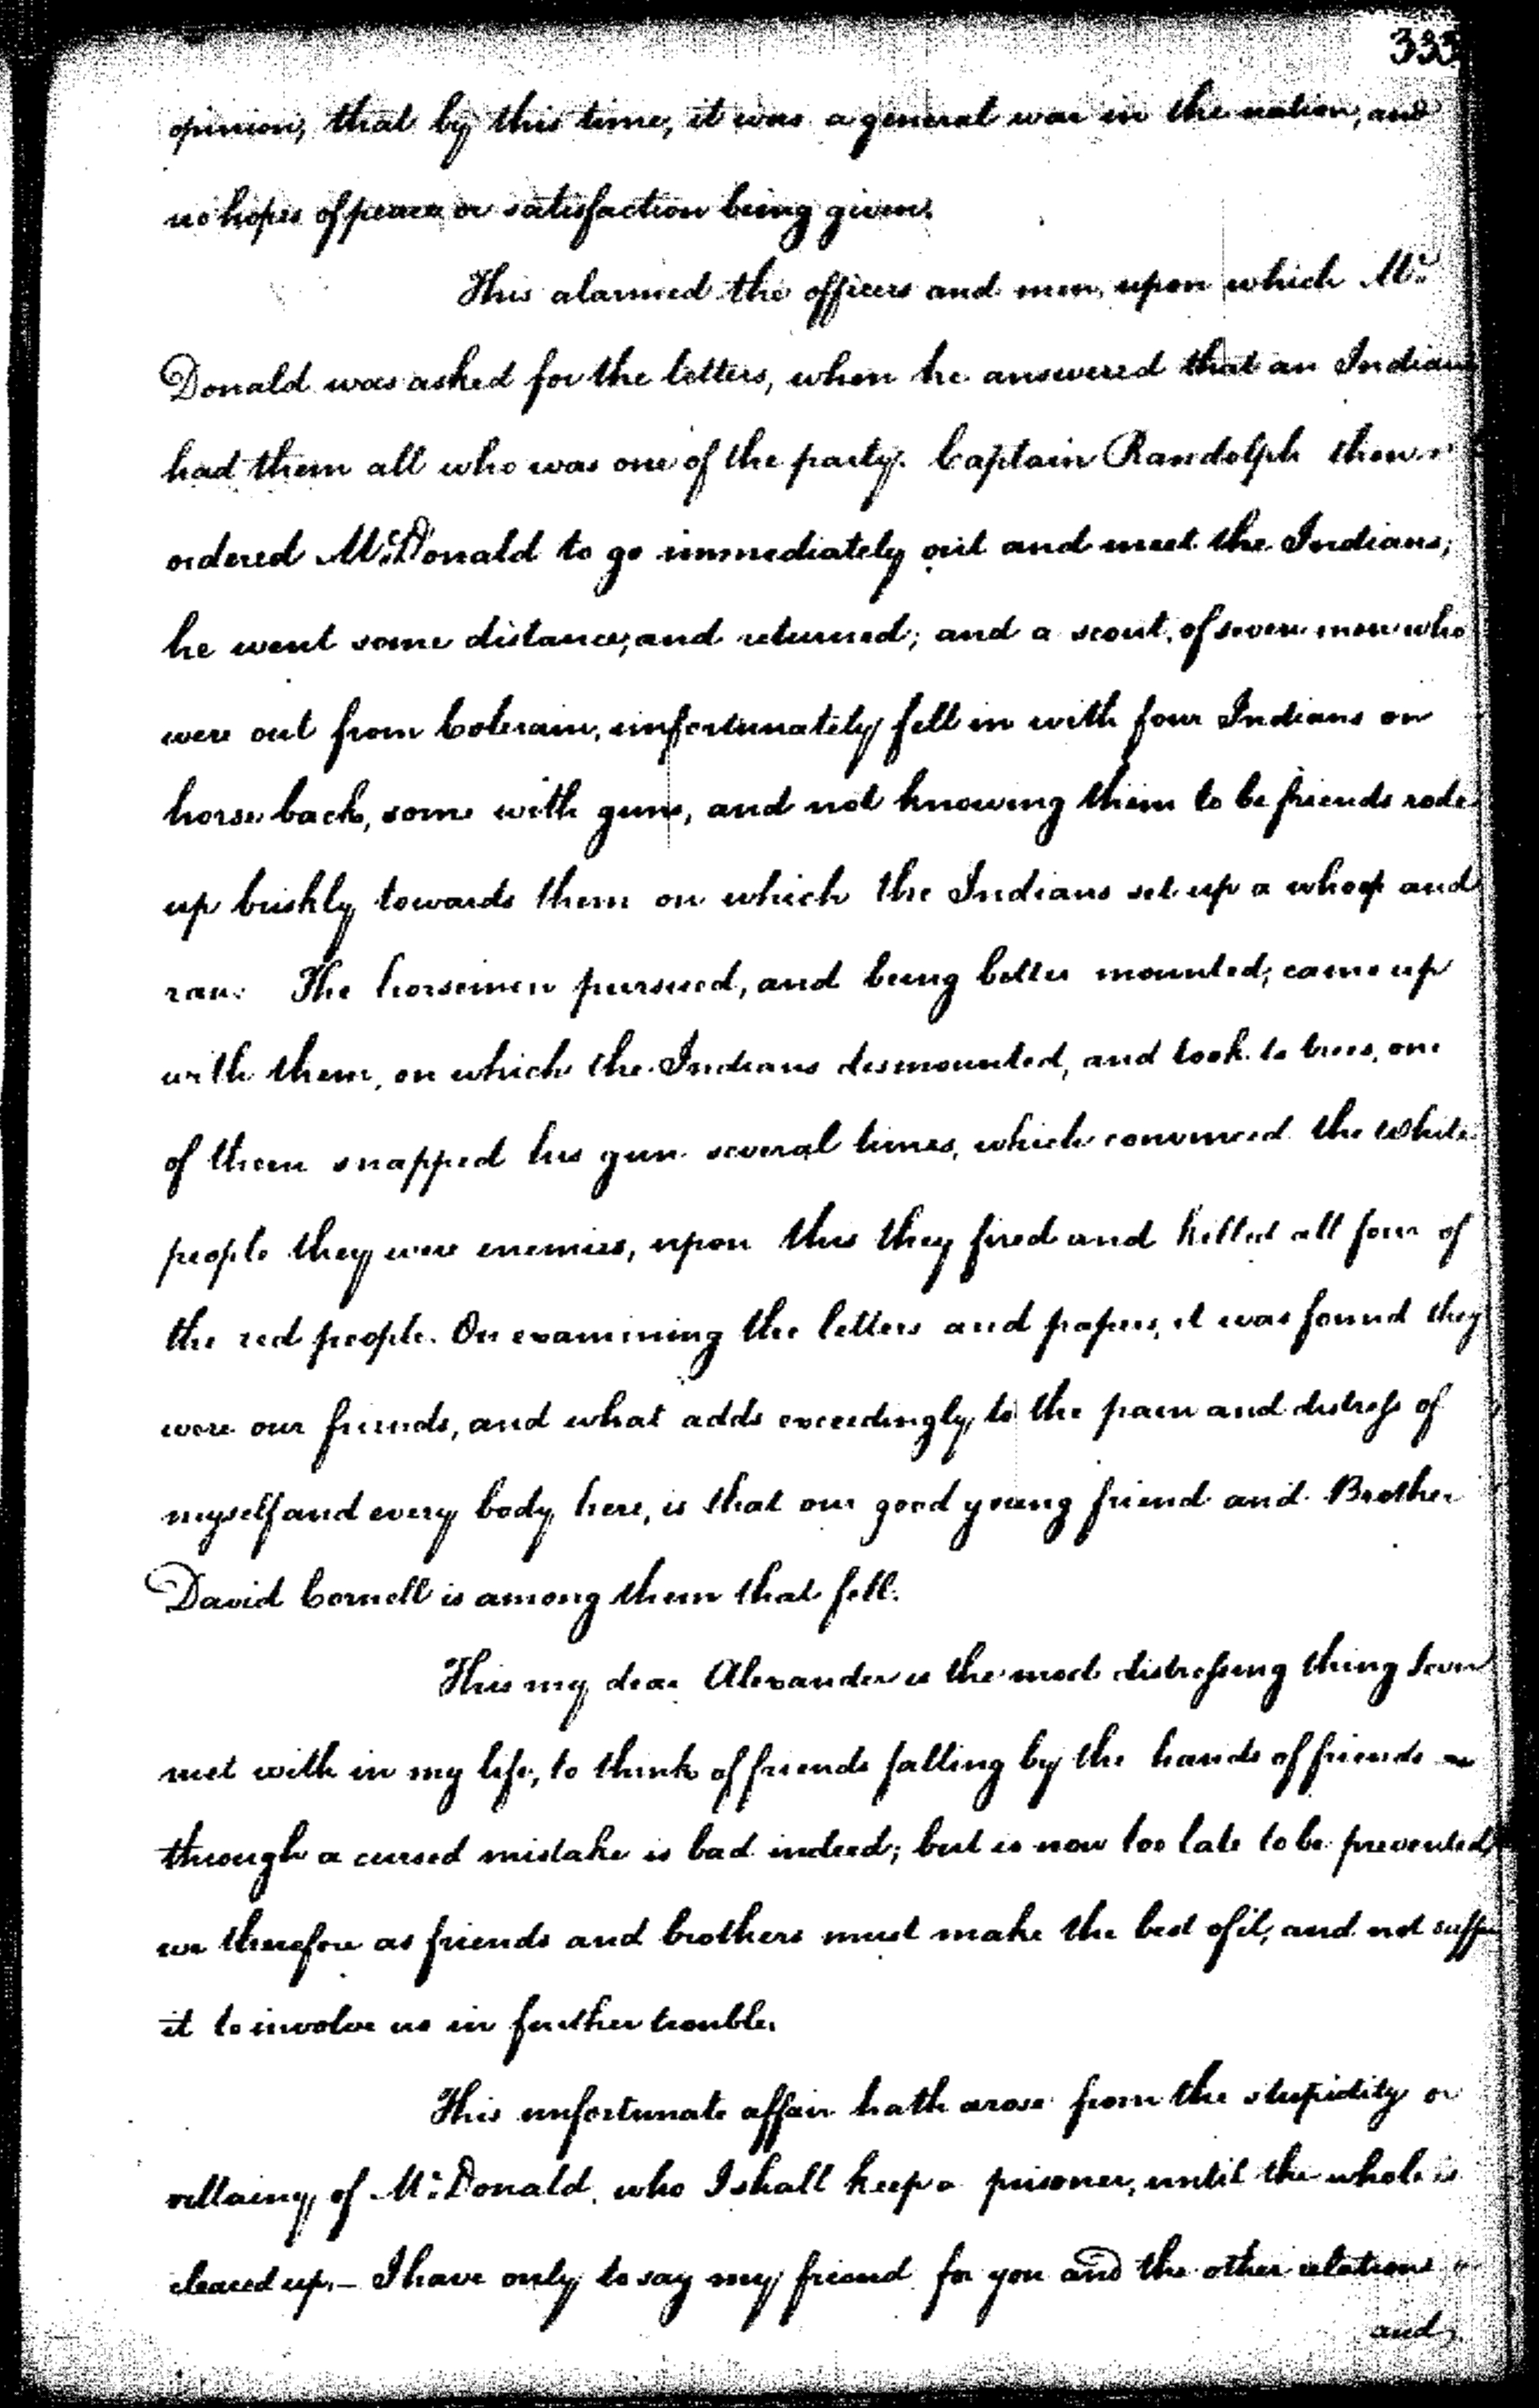 333
opinion, that by this time, it was a general war in the nation, and
no hopes of peace or satisfaction being given.
This alarmed the officers and men, upon which Mc
Donald was asked for the letters, when he answered that an Indian
had them all who was one of the party. Captain Randolph then
ordered McDonald to go immediately out and meet the Indians;
he went some distance, and returned; and a scout, of seven men who
were out from Colerain, unfortunately fell in with four Indians on
horse back, some with guns, and not knowing them to be friends rode
up briskly towards them on which the Indians set up a whoop and
ran. The horsemen pursued, and being better mounted, came up
with them, on which the Indians dismounted, and took to trees, one
of them snapped his gun several times, which convinced the white
people they were enemies, upon this they fired and killed all four of
the red people. On examining the letters and papers, it was found they
were our friends, and what adds exceedingly to the pain and distress of
myself and every body here, is that our good young friend and Brother
David Cornell is among them that fell.
This my dear Alexander is the most distressing thing I ever
met with in my life, to think of friends falling by the hands of friends
through a cursed mistake is bad indeed; but is now too late to be prevented
we therefore as friends and brothers must make the best of it, and not suffer
it to involve us in further trouble.
This unfortunate affair hath arose from the stupidity or
villainy of McDonald, who I shall keep a prisoner, until the whole is
cleared up. – I have only to say my friend for you and the other relations
and